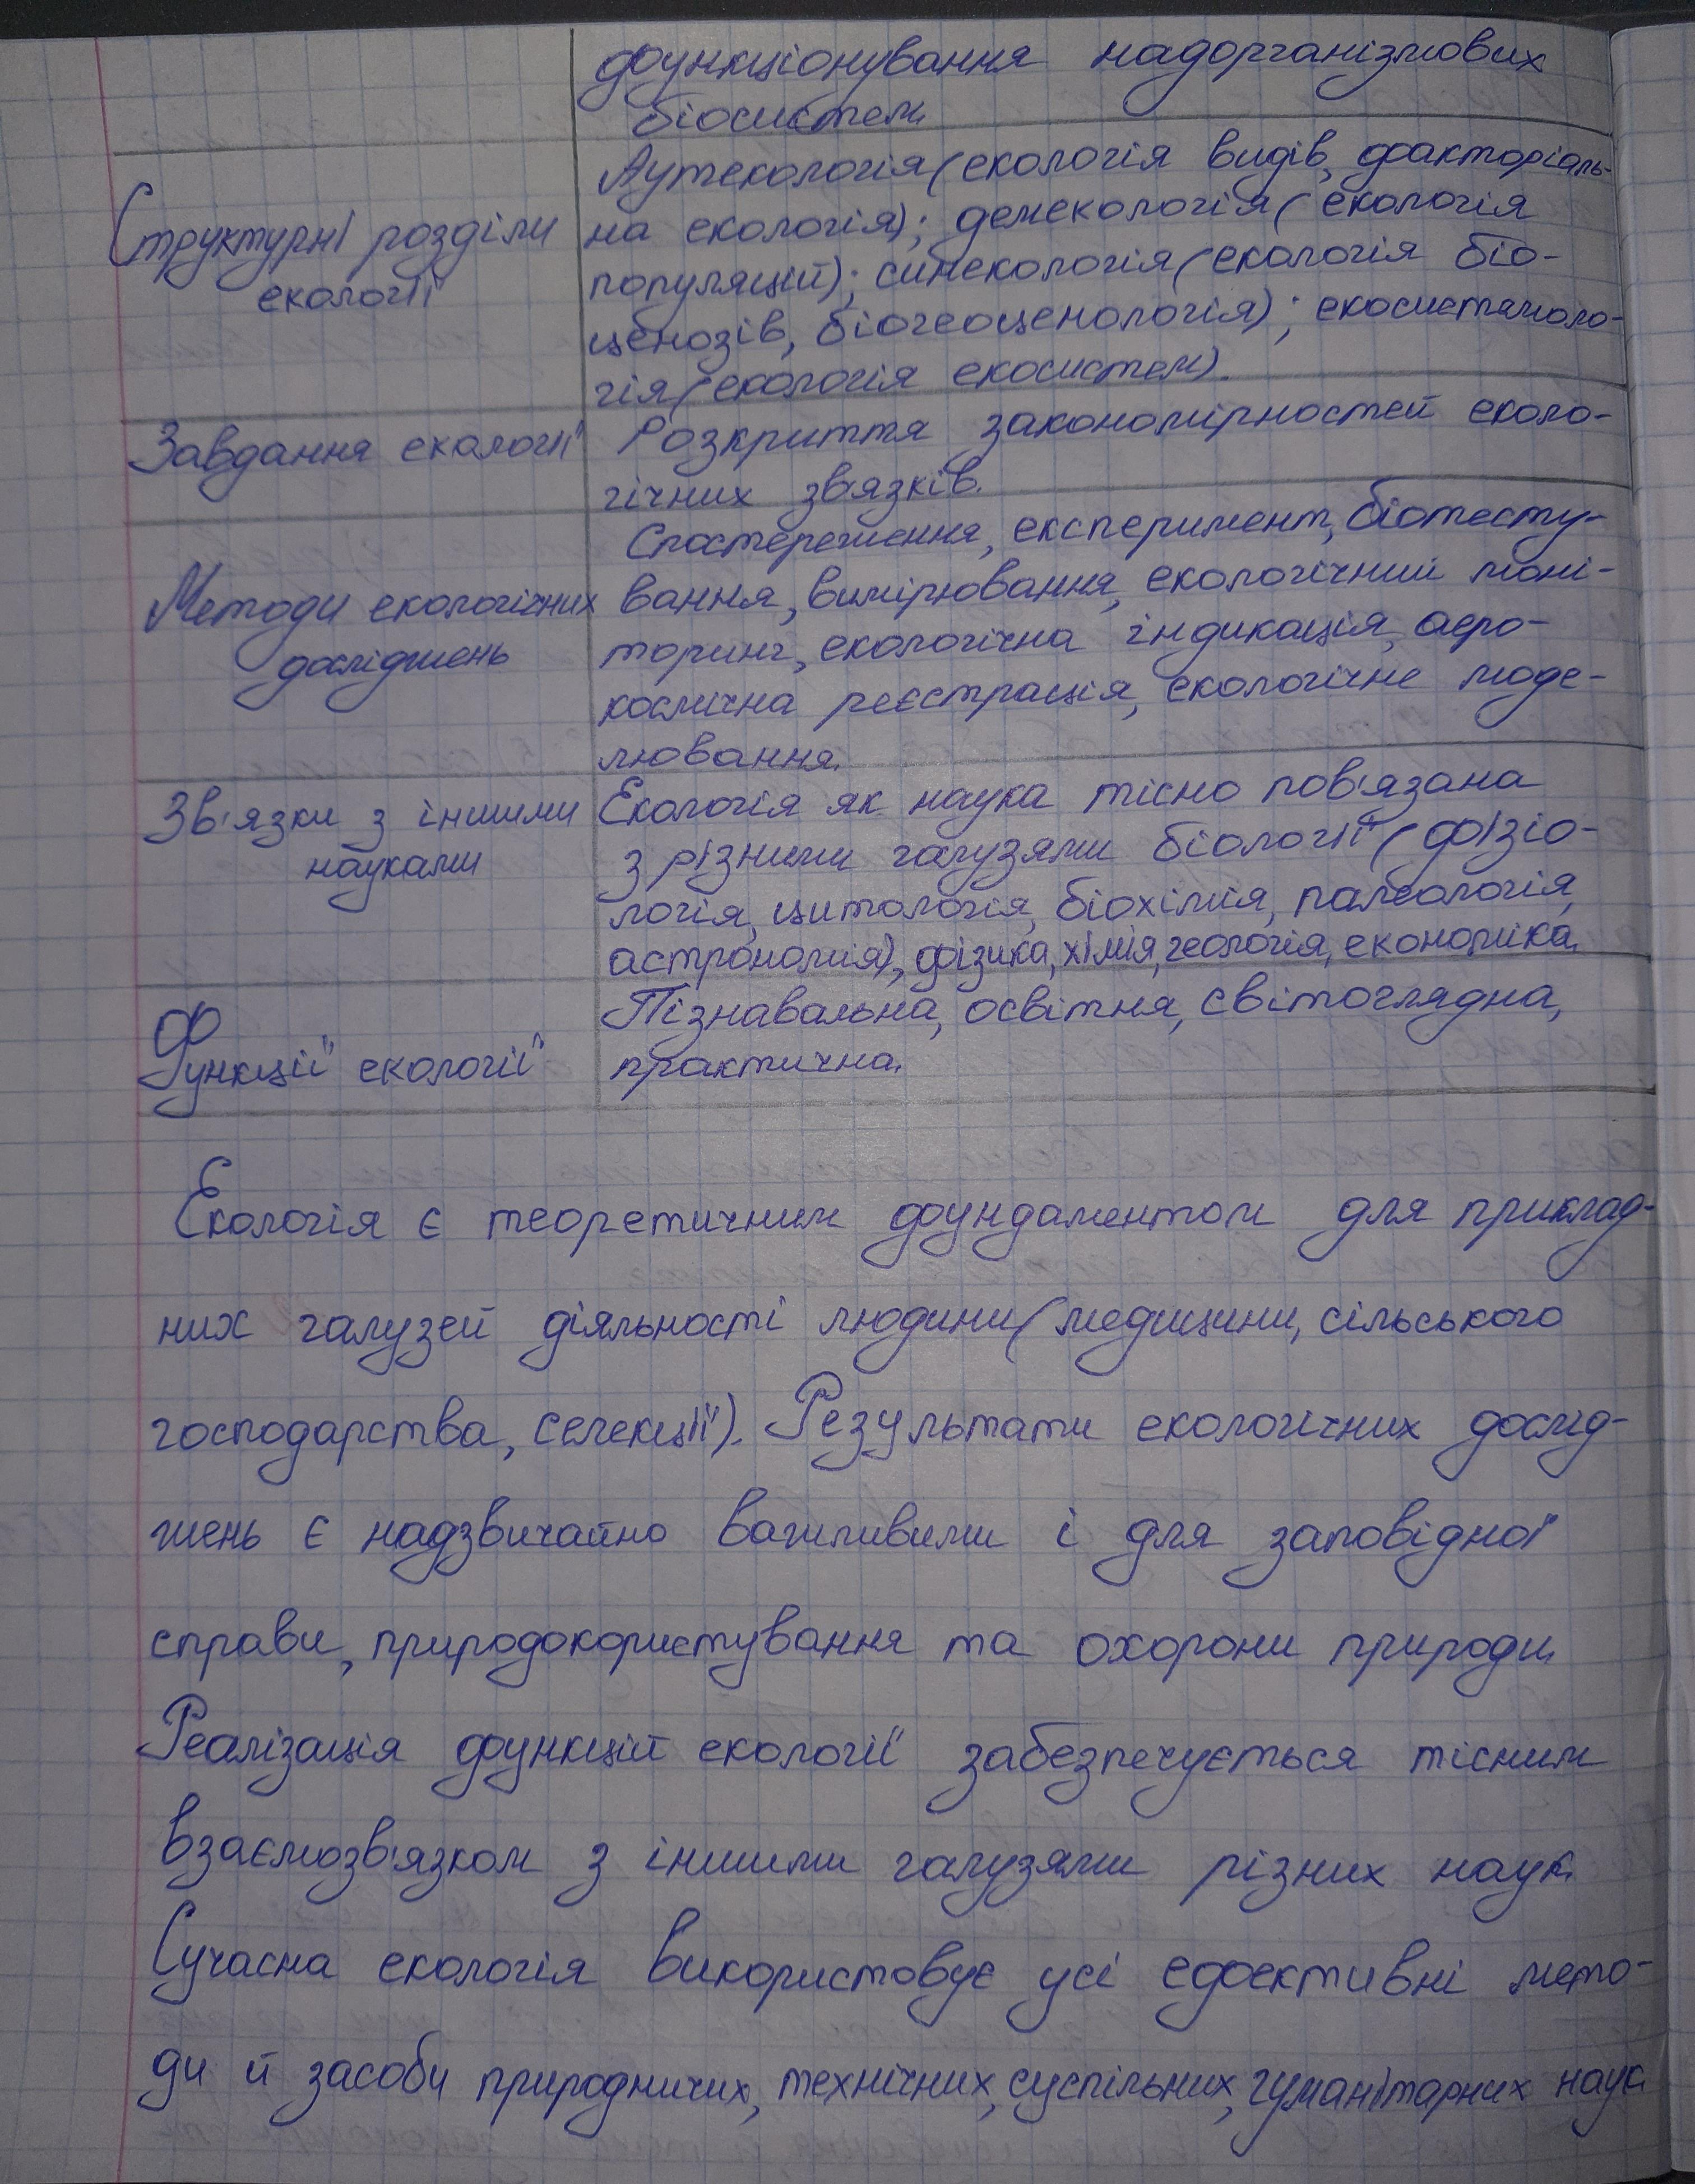 функціонування надорганізмових
біосистем.
Структурні розділи
екології
Аутекологія (екологія видів, факторіаль-
на екологія); демекологія (екологія
популяцій); синекологія (екологія біо-
ценозів, біогеоценологія); екосистемоло-
гія (екологія екосистем).
Завдання екології
Розкриття закономірностей еколо-
гічних зв'язків.
Методи екологічних
досліджень
Спостереження, експеримент, біотесту-
вання, вимірювання, екологічний моні-
торинг, екологічна індикація, аеро-
космічна реєстрація, екологічне моде-
лювання.
Зв'язки з іншими
науками
Екологія як наука тісно пов'язана
з різними галузями біології (фізіо-
логія, цитологія, біохімія, палеологія,
астрономія), фізика, хімія, геологія, економіка.
Функції екології
Пізнавальна, освітня, світоглядна,
практична.
Екологія є теоретичним фундаментом для приклад-
них галузей діяльності людини (медицини, сільського
господарства, селекції). Результати екологічних дослід-
жень є надзвичайно важливими і для заповідної
справи, природокористування та охорони природи.
Реалізація функцій екології забезпечується тісним
взаємозв'язком з іншими галузями різних наук.
Сучасна екологія використовує усі ефективні мето-
ди й засоби природничих, технічних, суспільних, гуманітарних наук.